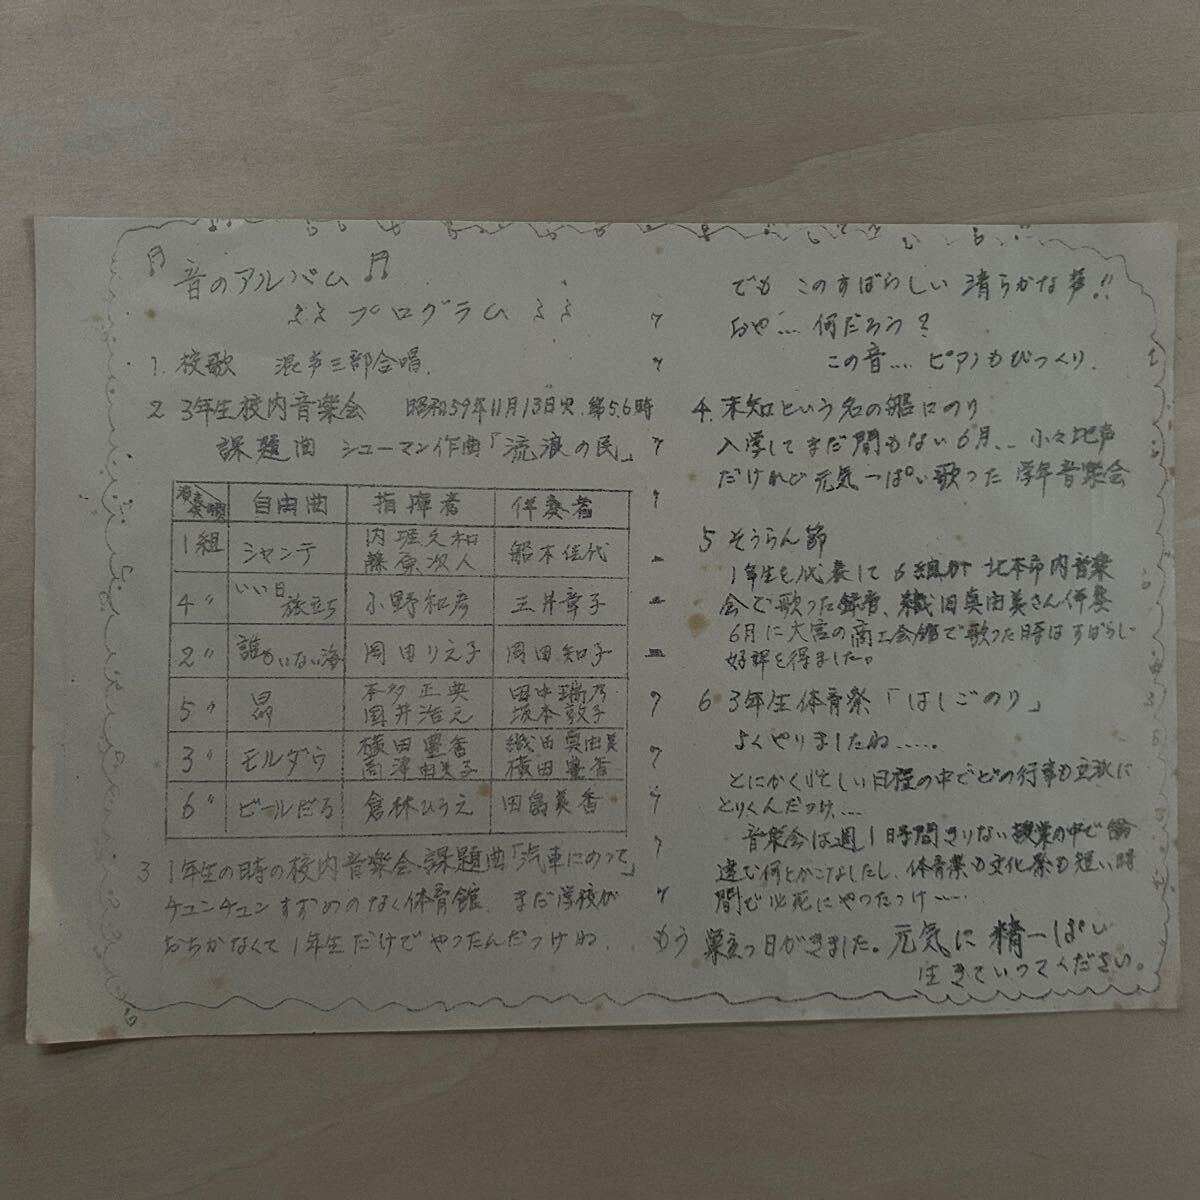 音のアルバム
プログラム
1. 校歌 混声三部合唱.
2 3年生校内音楽会 昭和59年11月13日火.第5.6時
課題曲 シューマン作曲「流浪の民」
演奏順 自由曲 指揮者 伴奏者
1組 シャンテ 内堀久和 藤原次人 船木佳代
4〃 いい日旅立ち 小野和彦 三井章子
2〃 誰もいない海 岡田りえ子 岡田知子
5〃 昴 本多正典 国井浩之 田中瑞乃 坂本敦子
3〃 モルダウ 横田豊香 高澤由美子 織田真由美 横田豊香
6〃 ビールだる 倉林ひろえ 田島美香
3 1年生の時の校内音楽会 課題曲「汽車にのって」
チュンチュンすずめのなく体育館. まだ学校が
おちかなくて1年生だけでやったんだっけね.
でも このすばらしい 清らかな声!!
おや... 何だろう?
この音.... ピアノもびっくり.
4. 未知という名の船にのり
入学してまだ間もない6月... 小々地声
だけれど元気一ぱい歌った 学年音楽会
5 そうらん節
1年生を代表して6組が 北本市内音楽
会で歌った録音、織田真由美さん伴奏
6月に大宮の商工会館で歌った時はすばらしい
好評を得ました。
6 3年生体育祭「はしごのり」
よくやりましたね.....。
とにかく忙しい日程の中でどの行事も立派に
とりくんだっけ...
音楽会は週1時間きりない授業の中で
何とかこなしたし、体育祭も文化祭も短い時
間で必死にやったっけ....
もう 巣立つ日がきました。元気に 精一ぱい
生きていってください。